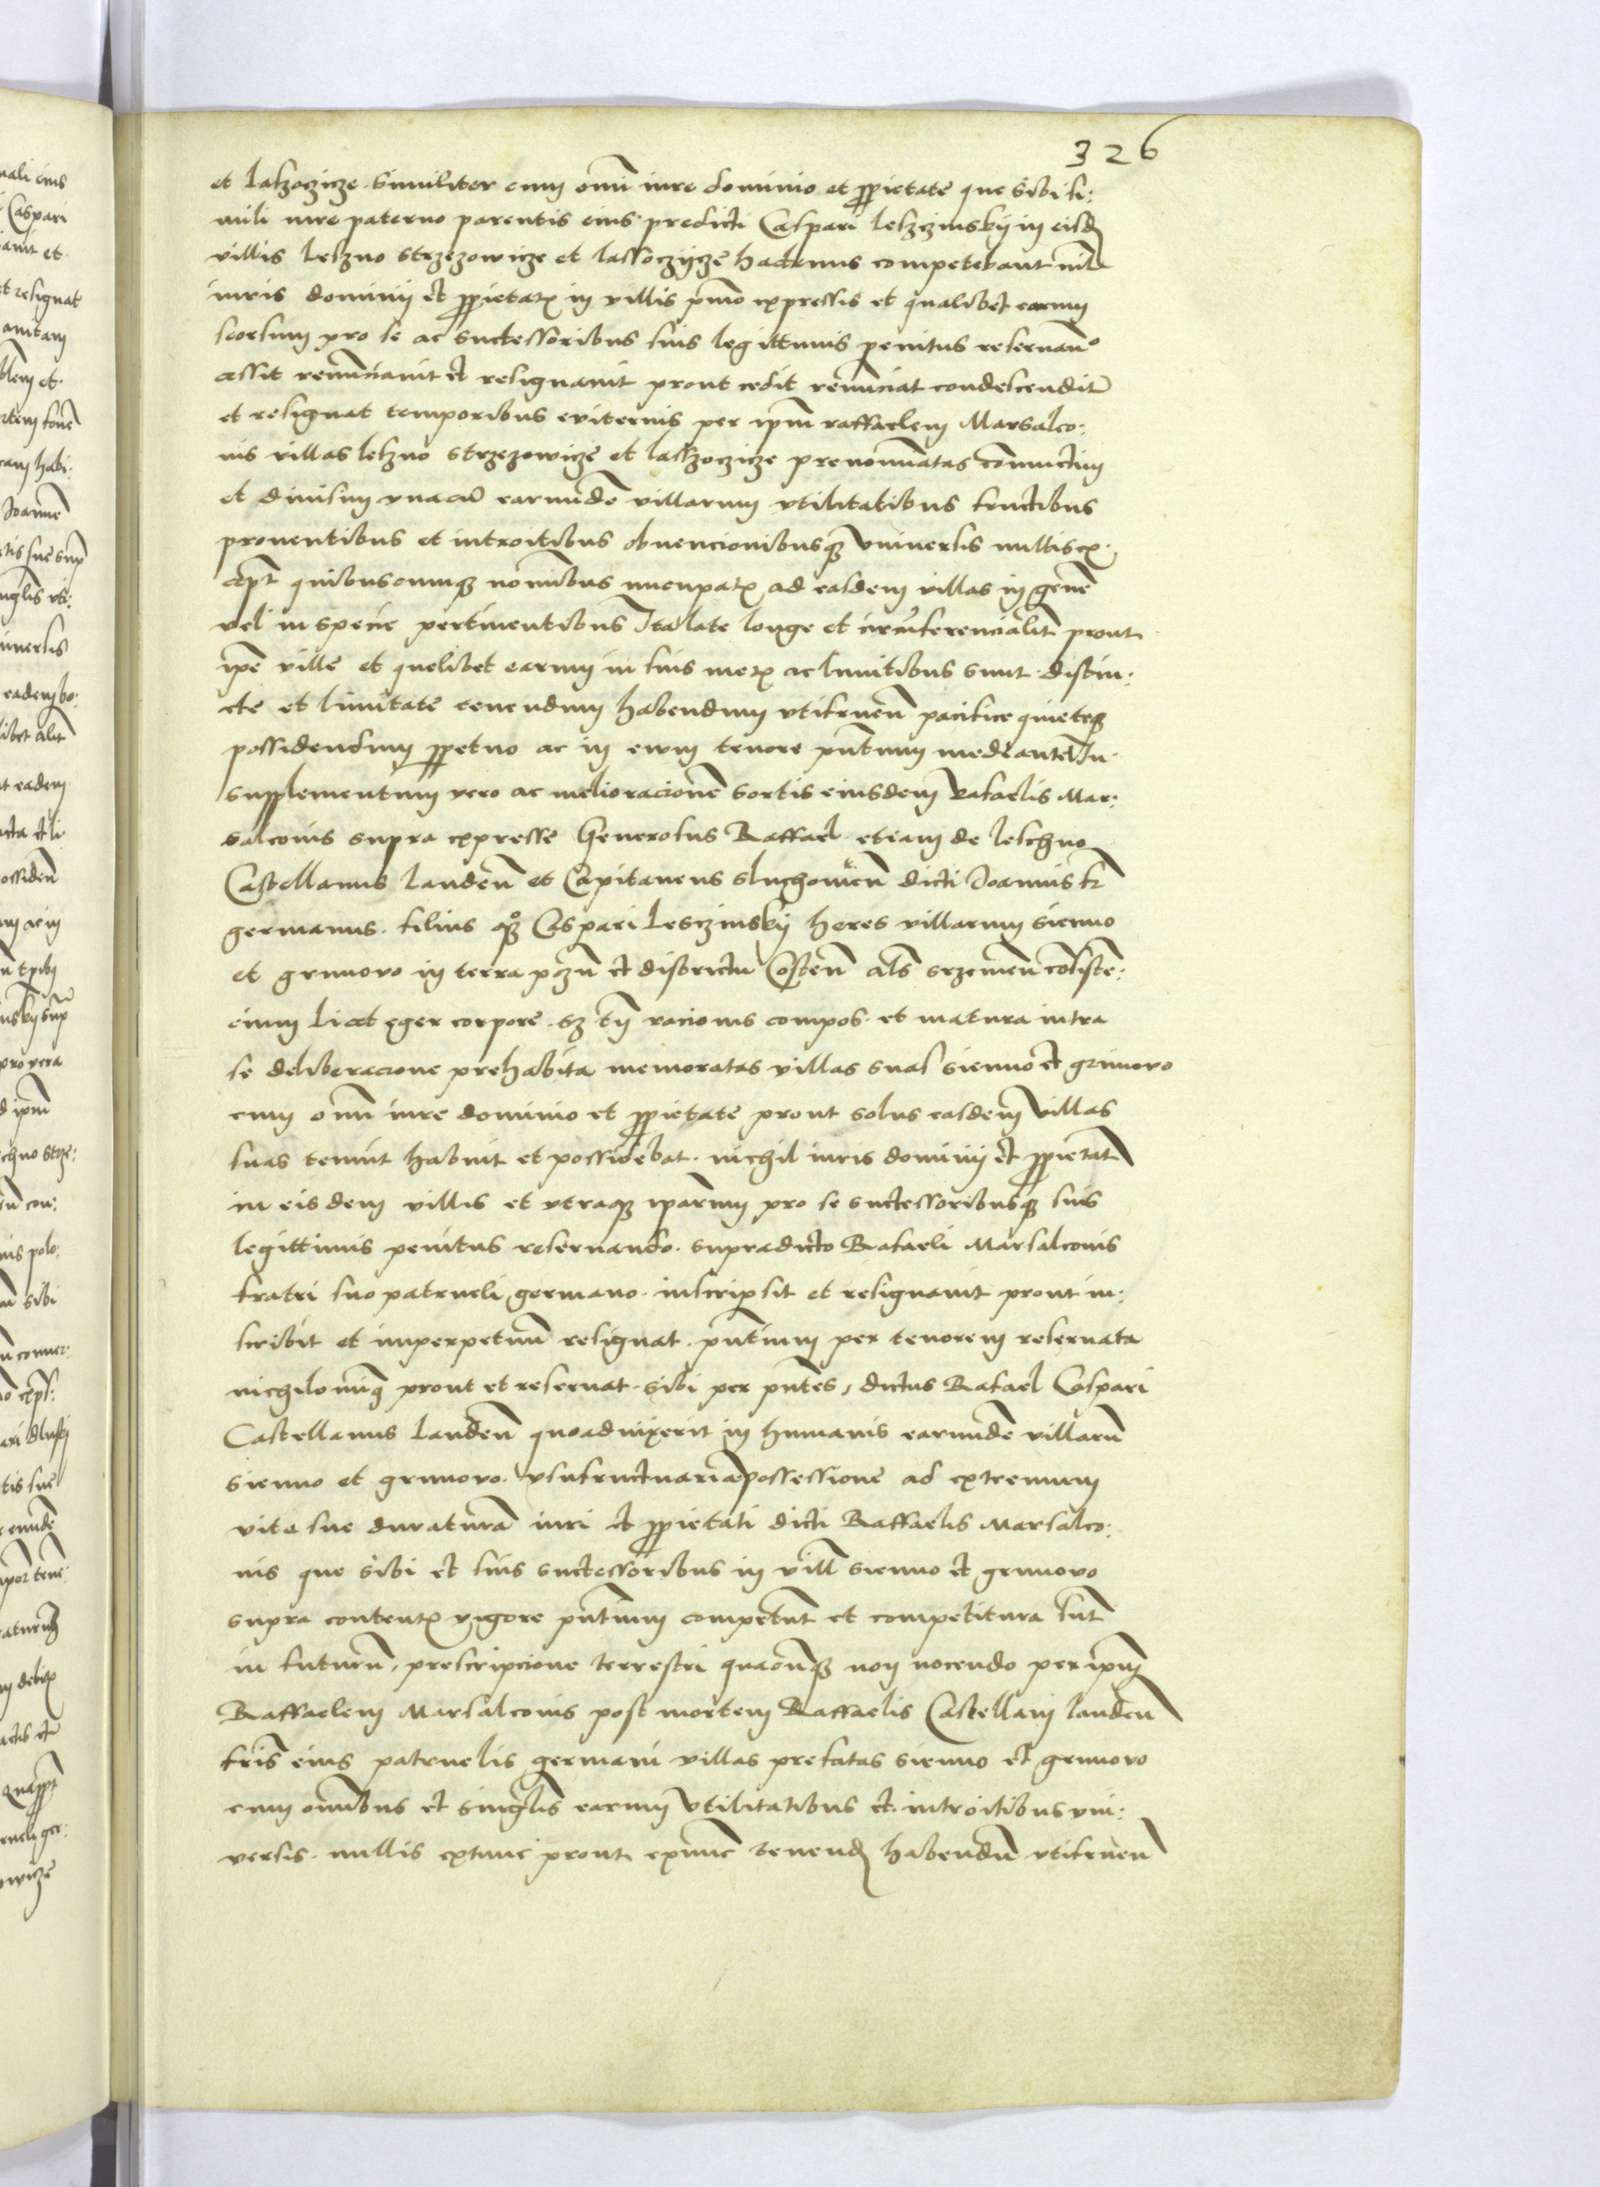 326
et laszoczicze similiter cum omni iure dominio et proprietate que sibi si:
mili iure paterno parentis eius predicti Caspari leszczinskij in eisdem
villis leszno strzezowicze et lassoczijcze hactenus competebant nil
iuris dominij et proprietatis in villis primo expressis et qualibet earum
seorsum pro se ac successoribus suis legittimis penitus reseruando
cessit renunciauit et resignauit prout cedit renunciat condescendit
et resignat temporibus eviternis per ipsum raffaelem Marsalco:
nis villas leszno strzezowicze et laszoczicze prenominatas coniunctim
et diuisim vnacum earundem villarum vtilitatibus fructibus
prouentibus et introitibus obuencionibusque vniuersis nullis ex:
ceptis quibuscumque nominibus nuncupatis ad easdem villas in genere
vel in specie pertinentibus Ita late longe et circumferencialiter prout
ipse ville et quelibet earum in suis metis ac limitibus sunt distin:
cte et limitate tenendum habendum vtifruendum pacifice quieteque
possidendum perpetuo ac in ewum tenore presentium mediante In
supplementum vero ac melioracionem sortis eiusdem Rafaelis Mar:
salconis supra expresse Generosus Raffael etiam de leschno
Castellanus landensis et Capitaneus sluchowiensis dicti Joannis frater
germanus filius quondam Caspari Lesczinskij heres villarum sienno
et grunovo in terra poznaniensi et districtu Costensi alias srzemensi consisten:
cium licet eger corpore sed tamen racionis compos et matura intra
se deliberacione prehabita memoratas villas suas sienno et grunovo
cum omni iure dominio et proprietate prout solus easdem villas
suas tenuit habuit et possidebat nichil iuris dominij et proprietatis
in eisdem villis et vtraque iparum pro se successoribusque suis
legittimis penitus reseruando supradicto Rafaeli Marsalconis
fratri suo patrueli germano inscripsit et resignauit prout in:
scribit et inperpetuum resignat presentium per tenorem reseruata
nichilominus prout et reseruat sibi per presentes dictus Rafael Caspari
Castellanus landensis quoaduixerit in humanis earundem villarum
sienno et grunovo vsufructuaria possessione ad extremum
vite sue duraturam iuri et proprietati dicti Raffaelis Marsalco:
nis que sibi et suis successoribus in villis sienno et grunovo
supra contentis vigore presentium competunt et competitura sunt
in futurum prescripcione terrestri quacumque non nocendo per ipsum
Raffaelem Marsalconis post mortem Raffaelis Castellani landensis
fratris eius patruelis germani villas prefatas sienno et grunovo
cum omnibus et singulis earum vtilitatibus et introitibus vni:
versis nullis extunc prout exnunc tenendum habendum vtifruendum